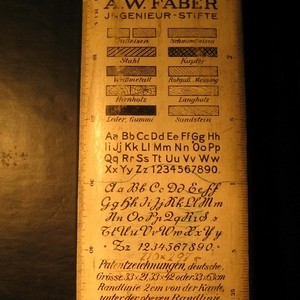 A.W. FABER
INGENIEUR-STIFTE
Gußeisen Schmiedeeisen
Stahl Kupfer
Weißmetall Rotguß, Messing
Hirnholz Langholz
Leder, Gummi Sandstein
Aa Bb Cc Dd Ee Ff Gg Hh
Ii Jj Kk Ll Mm Nn Oo Pp
Qq Rr Ss Tt Uu Vv Ww
Xx Yy Zz 1234567890.
Aa Bb Cc Dd Ee Ff
Gg Hh Ii Jj Kk Ll Mm
Nn Oo Pp Qq Rr S s
Tt Uu Vv Ww Xx Yy
Zz 1234567890.
Patentzeichnungen, deutsche,
Grösse 33×21, 33×42 oder 33×63cm
Randlinie 2cm von der Kante,
unter der oberen Randlinie